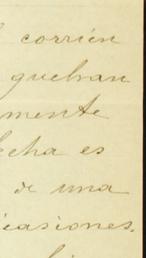 corrien
quebran
mente
echa es
de una
casiones.